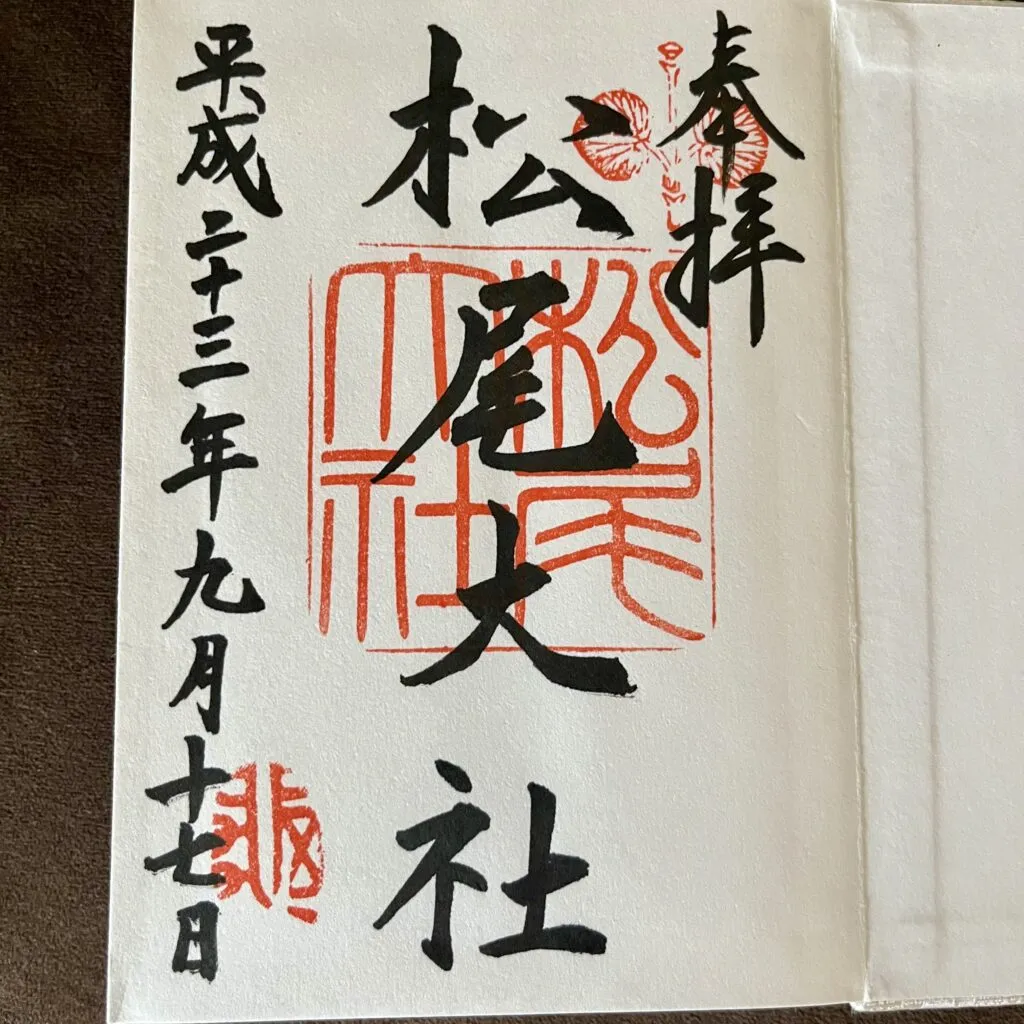 奉拝
松尾大社
松尾大社
平成二十三年九月十七日